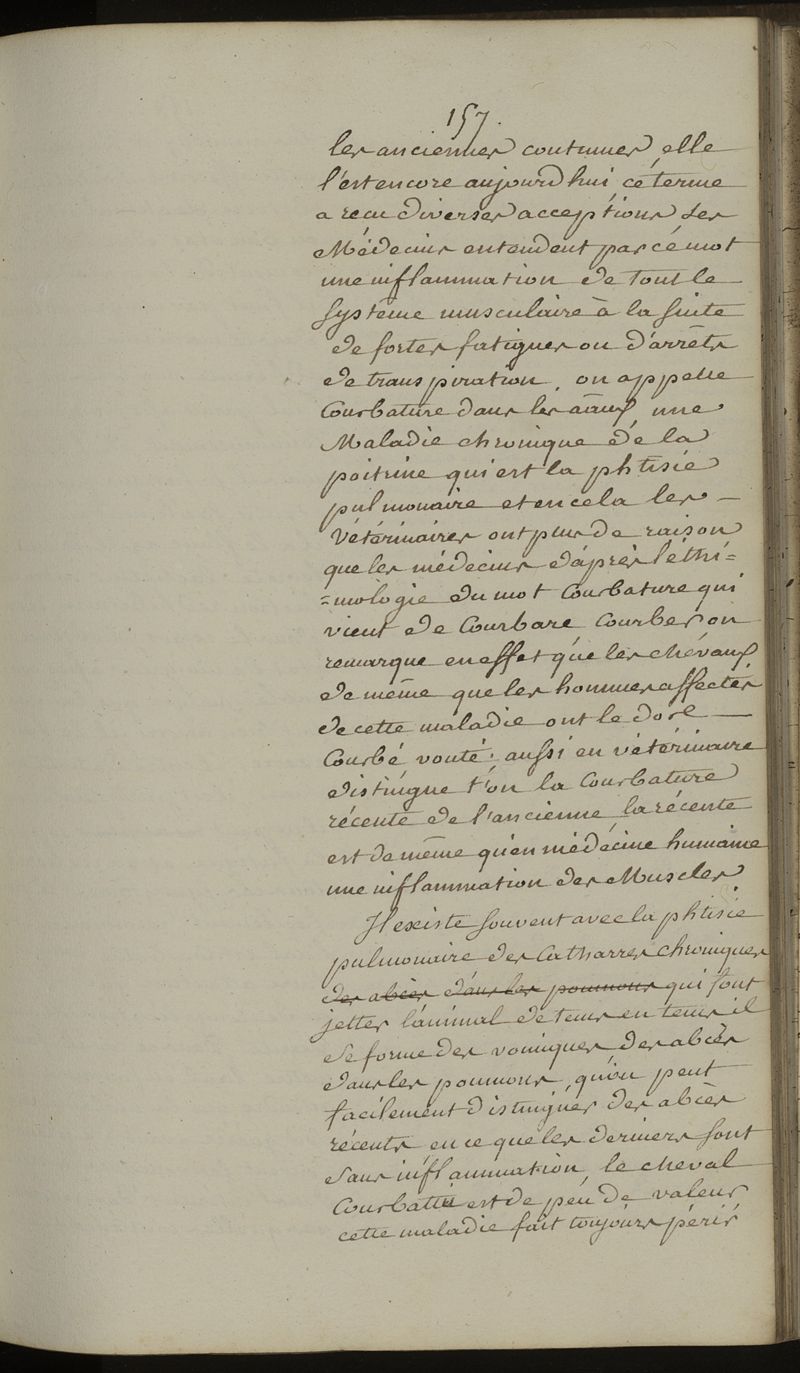 157.
les anciennes coutumes, elle
l'est encore aujourd'hui, cé terme
a recu diverses acceptions. Les
Médecins entendent par cé mot
une inflammation de tout le
Système musculaire à la suite
de fortes fatigues ou d'arrêts
de transpiration, on appelle
Courbature dans les aaux une
Maladie chronique de la
poitrine qui est la phtisie
pulmonaire et en cela les —
Vétérinaires ont plus de raison
que les médecins d'après l'éthi=
=mologie du mot Courbature qui
vient de Courbare Courber on
remarque en effet que les chévaux
de même que les hommes affectés
de cette maladie ont le dos —
Courbé vouté; aussi en vétérinaire
distingue t'on la Courbature
récente de l'ancienne, la récente
est de même qu'en médécine humaine
une inflammation des Muscles
Il existe souvent avec la phtisie
pulmonaire des Catharres chroniques
des abcès dans les poumons qui font
jetter l'animal de tems en tems il
se forme des vomiques des abcès
dans les poumons, qu'on peut
facilement distinguer des abcès
récents, en ce que les derniers sont
sans inflammation, le cheval
Courbattu est de peu de valeur
cette maladie fait toujours périr